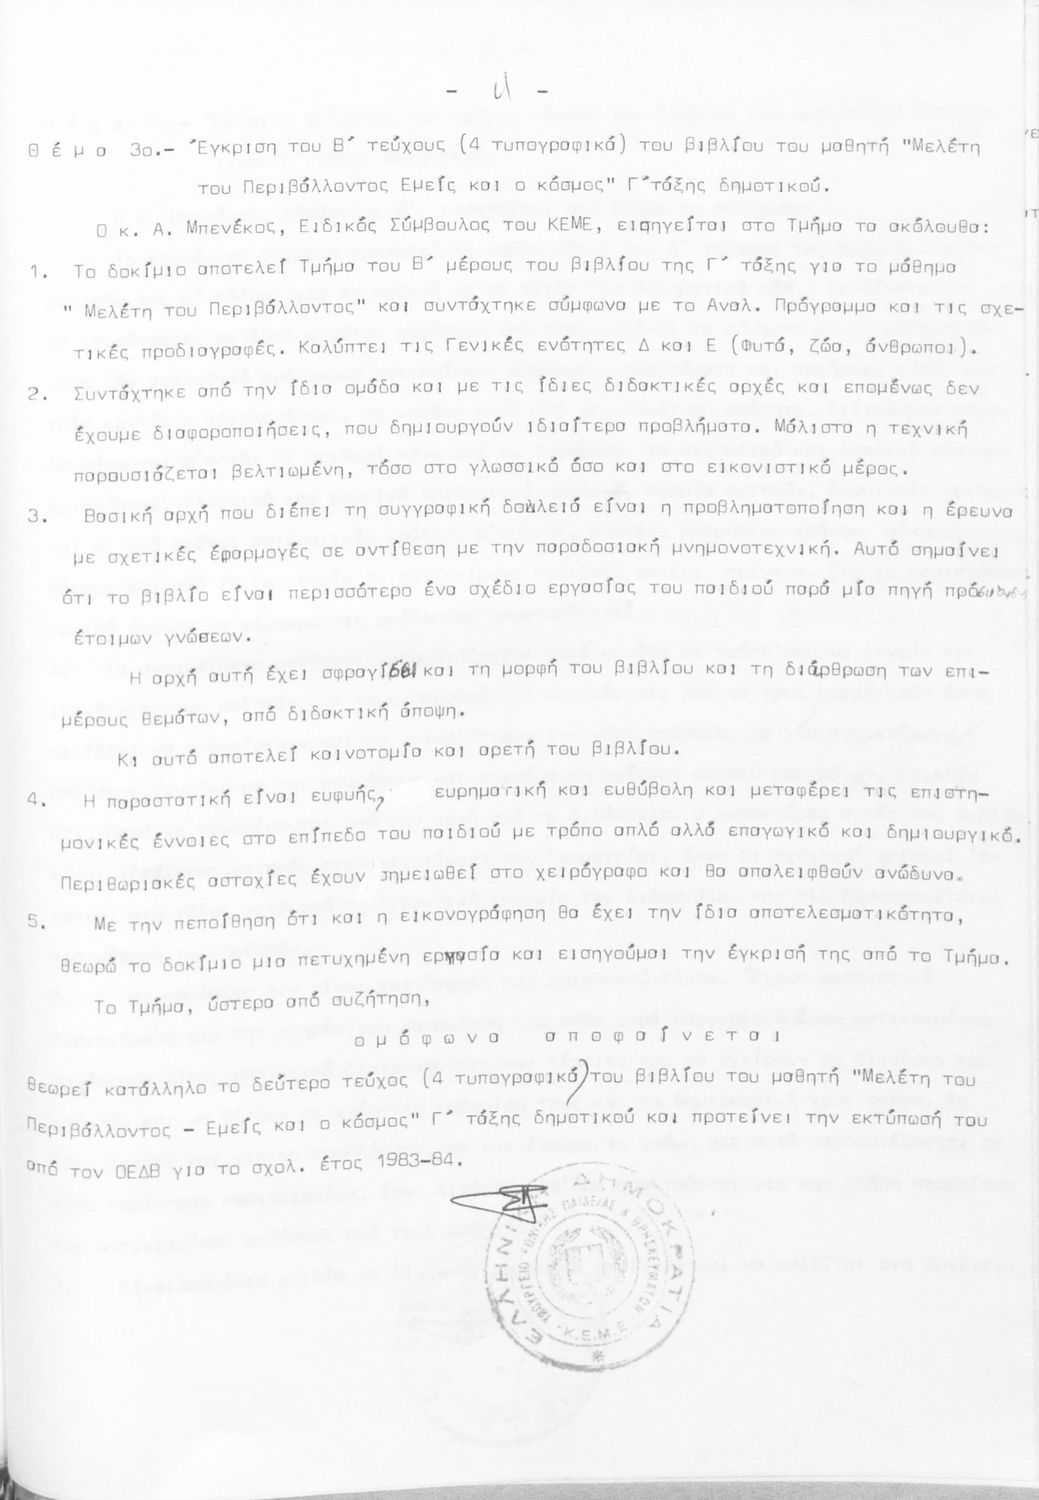 Θ έ μ α 3ο.- Έγκριση του Β΄ τεύχους (4 τυπογραφικά) του βιβλίου του μαθητή "Μελέτη
του Περιβάλλοντος Εμείς και ο κόσμος" Γ΄τάξης δημοτικού.
Ο κ. Α. Μπενέκος, Ειδικός Σύμβουλος του ΚΕΜΕ, εισηγείται στο Τμήμα τα ακόλουθα:
1. Το δοκίμιο αποτελεί Τμήμα του Β΄ μέρους του βιβλίου της Γ΄ τάξης για το μάθημα
" Μελέτη του Περιβάλλοντος" και συντάχτηκε σύμφωνα με το Αναλ. Πρόγραμμα και τις σχε-
τικές προδιαγραφές. Καλύπτει τις Γενικές ενότητες Δ και Ε (Φυτά, ζώα, άνθρωποι).
2. Συντάχτηκε από την ίδια ομάδα και με τις ίδιες διδακτικές αρχές και επομένως δεν
έχουμε διαφοροποιήσεις, που δημιουργούν ιδιαίτερα προβλήματα. Μάλιστα η τεχνική
παρουσιάζεται βελτιωμένη, τόσο στο γλωσσικό όσο και στο εικονιστικό μέρος.
3. Βασική αρχή που διέπει τη συγγραφική δουλειά είναι η προβληματοποίηση και η έρευνα
με σχετικές έφαρμογές σε αντίθεση με την παραδοσιακή μνημονοτεχνική. Αυτό σημαίνει
ότι το βιβλίο είναι περισσότερο ένα σχέδιο εργασίας του παιδιού παρά μία πηγή
έτοιμων γνώσεων.
Η αρχή αυτή έχει σφραγίσει και τη μορφή του βιβλίου και τη διάρθρωση των επι-
μέρους θεμάτων, από διδακτική άποψη.
Κι αυτό αποτελεί καινοτομία και αρετή του βιβλίου.
4. Η παραστατική είναι ευφυής, ευρηματική και ευθύβολη και μεταφέρει τις επιστη-
μονικές έννοιες στο επίπεδο του παιδιού με τρόπο απλό αλλά επαγωγικό και δημιουργικό.
Περιθωριακές αστοχίες έχουν σημειωθεί στο χειρόγραφο και θα απαλειφθούν ανώδυνα.
5. Με την πεποίθηση ότι και η εικονογράφηση θα έχει την ίδια αποτελεσματικότητα,
θεωρώ το δοκίμιο μια πετυχημένη εργασία και εισηγούμαι την έγκρισή της από το Τμήμα.
Το Τμήμα, ύστερα από συζήτηση,
ο μ ό φ ω ν α α π ο φ α ί ν ε τ α ι
θεωρεί κατάλληλο το δεύτερο τεύχος (4 τυπογραφικά) του βιβλίου του μαθητή "Μελέτη του
Περιβάλλοντος - Εμείς και ο κόσμος" Γ΄ τάξης δημοτικού και προτείνει την εκτύπωσή του
από τον ΟΕΔΒ για το σχολ. έτος 1983-84.
ΕΛΛΗΝΙΚΗ ΔΗΜΟΚΡΑΤΙΑ
ΥΠΟΥΡΓΕΙΟ ΕΘΝΙΚΗΣ ΠΑΙΔΕΙΑΣ & ΘΡΗΣΚΕΥΜΑΤΩΝ
Κ.Ε.Μ.Ε.